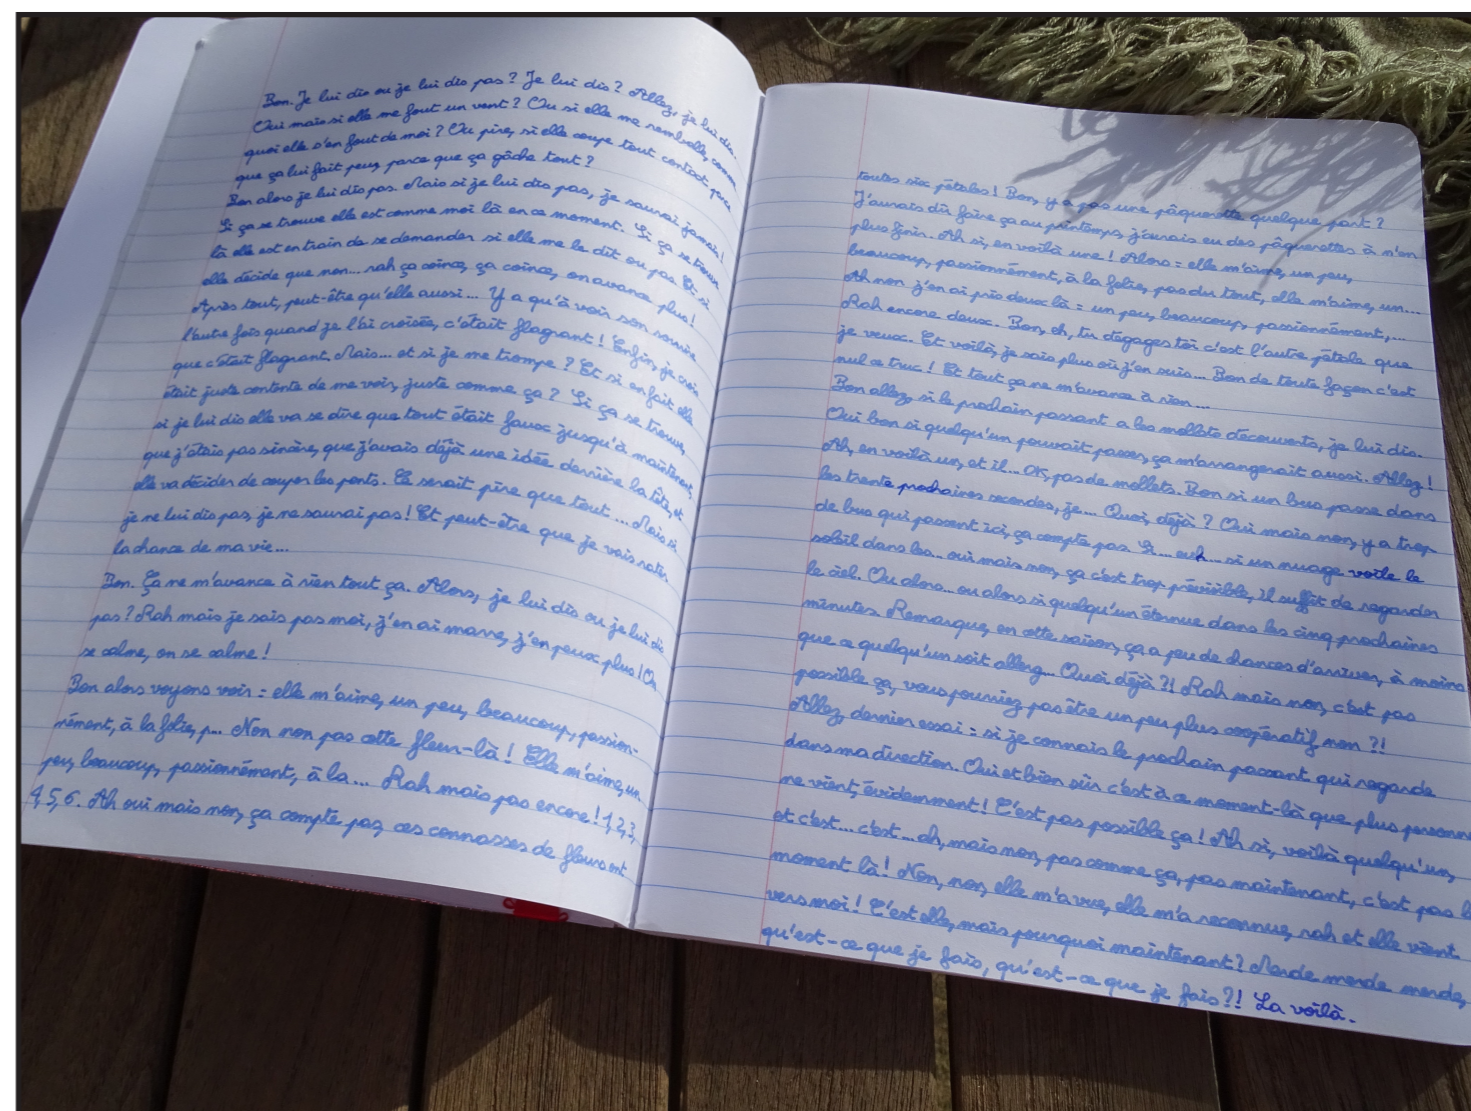 Bon. Je lui dis ou je lui dis pas ? Je lui dis ? Allez, je lui dis.
Oui mais si elle me fout un vent ? Ou si elle me remballe, comme
quoi elle s'en fout de moi ? Ou pire, si elle coupe tout contact parce
que ça lui fait peur, parce que ça gâche tout ?
Bon alors je lui dis pas. Mais si je lui dis pas, je saurai jamais !
Si ça se trouve elle est comme moi là en ce moment. Si ça se trouve
là elle est en train de se demander si elle me le dit ou pas. Et si
elle décide que non... rah ça coince, ça coince, on avance plus !
Après tout, peut-être qu'elle aussi... Y a qu'à voir son sourire
l'autre fois quand je l'ai croisée, c'était flagrant ! Enfin, je crois
que c'était flagrant. Mais... et si je me trompe ? Et si en fait elle
était juste contente de me voir, juste comme ça ? Si ça se trouve,
si je lui dis elle va se dire que tout était faux jusqu'à maintenant,
que j'étais pas sincère, que j'avais déjà une idée derrière la tête, et
elle va décider de couper les ponts. Ce serait pire que tout... Mais si
je ne lui dis pas, je ne saurai pas ! Et peut-être que je vais rater
la chance de ma vie...
Bon. Ça ne m'avance à rien tout ça. Alors, je lui dis ou je lui dis
pas ? Rah mais je sais pas moi, j'en ai marre, j'en peux plus ! On
se calme, on se calme !
Bon alors voyons voir : elle m'aime, un peu, beaucoup, passion-
nément, à la folie, p... Non non pas cette fleur-là ! Elle m'aime, un
peu, beaucoup, passionnément, à la... Rah mais pas encore ! 1, 2, 3,
4, 5, 6. Ah oui mais non, ça compte pas, ces connasses de fleurs ont
toutes six pétales ! Bon, y a pas une pâquerette quelque part ?
J'aurais dû faire ça au printemps, j'aurais eu des pâquerettes à n'en
plus finir. Ah si, en voilà une ! Alors : elle m'aime, un peu,
beaucoup, passionnément, à la folie, pas du tout, elle m'aime, un...
Ah non j'en ai pris deux là : un peu, beaucoup, passionnément,...
Rah encore deux. Bon, eh, tu dégages toi c'est l'autre pétale que
je veux. Et voilà, je sais plus où j'en suis... Bon de toute façon c'est
nul ce truc ! Et tout ça ne m'avance à rien...
Bon allez, si le prochain passant a les mollets découverts, je lui dis.
Oui bon si quelqu'un pouvait passer, ça m'arrangerait aussi. Allez !
Ah, en voilà un, et il... OK, pas de mollets. Bon si un bus passe dans
les trente prochaines secondes, je... Quoi, déjà ? Oui mais non, y a trop
de bus qui passent ici, ça compte pas. Si... euh... si un nuage voile le
soleil dans les... oui mais non, ça c'est trop prévisible, il suffit de regarder
le ciel. Ou alors... ou alors si quelqu'un éternue dans les cinq prochaines
minutes. Remarque, en cette saison, ça a peu de chances d'arriver, à moins
que ce quelqu'un soit allerg... Quoi, déjà ?! Rah mais non, c'est pas
possible ça, vous pourriez pas être un peu plus coopératif non ?!
Allez, dernier essai : si je connais le prochain passant qui regarde
dans ma direction. Oui et bien sûr c'est à ce moment-là que plus personne
ne vient, évidemment ! C'est pas possible ça ! Ah si, voilà quelqu'un,
et c'est... c'est... ah, mais non, pas comme ça, pas maintenant, c'est pas l
moment là ! Non, non, elle m'a vue, elle m'a reconnue, rah et elle vient
vers moi ! C'est elle, mais pourquoi maintenant ? Merde merde merde,
qu'est-ce que je fais, qu'est-ce que je fais ?! La voilà.